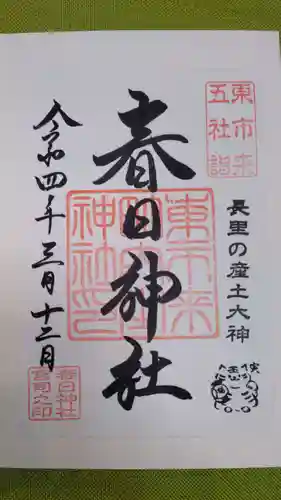 東市来
五社詣
長里の産土大神
春日神社
令和四年三月十二日
春日神社
宮司之印